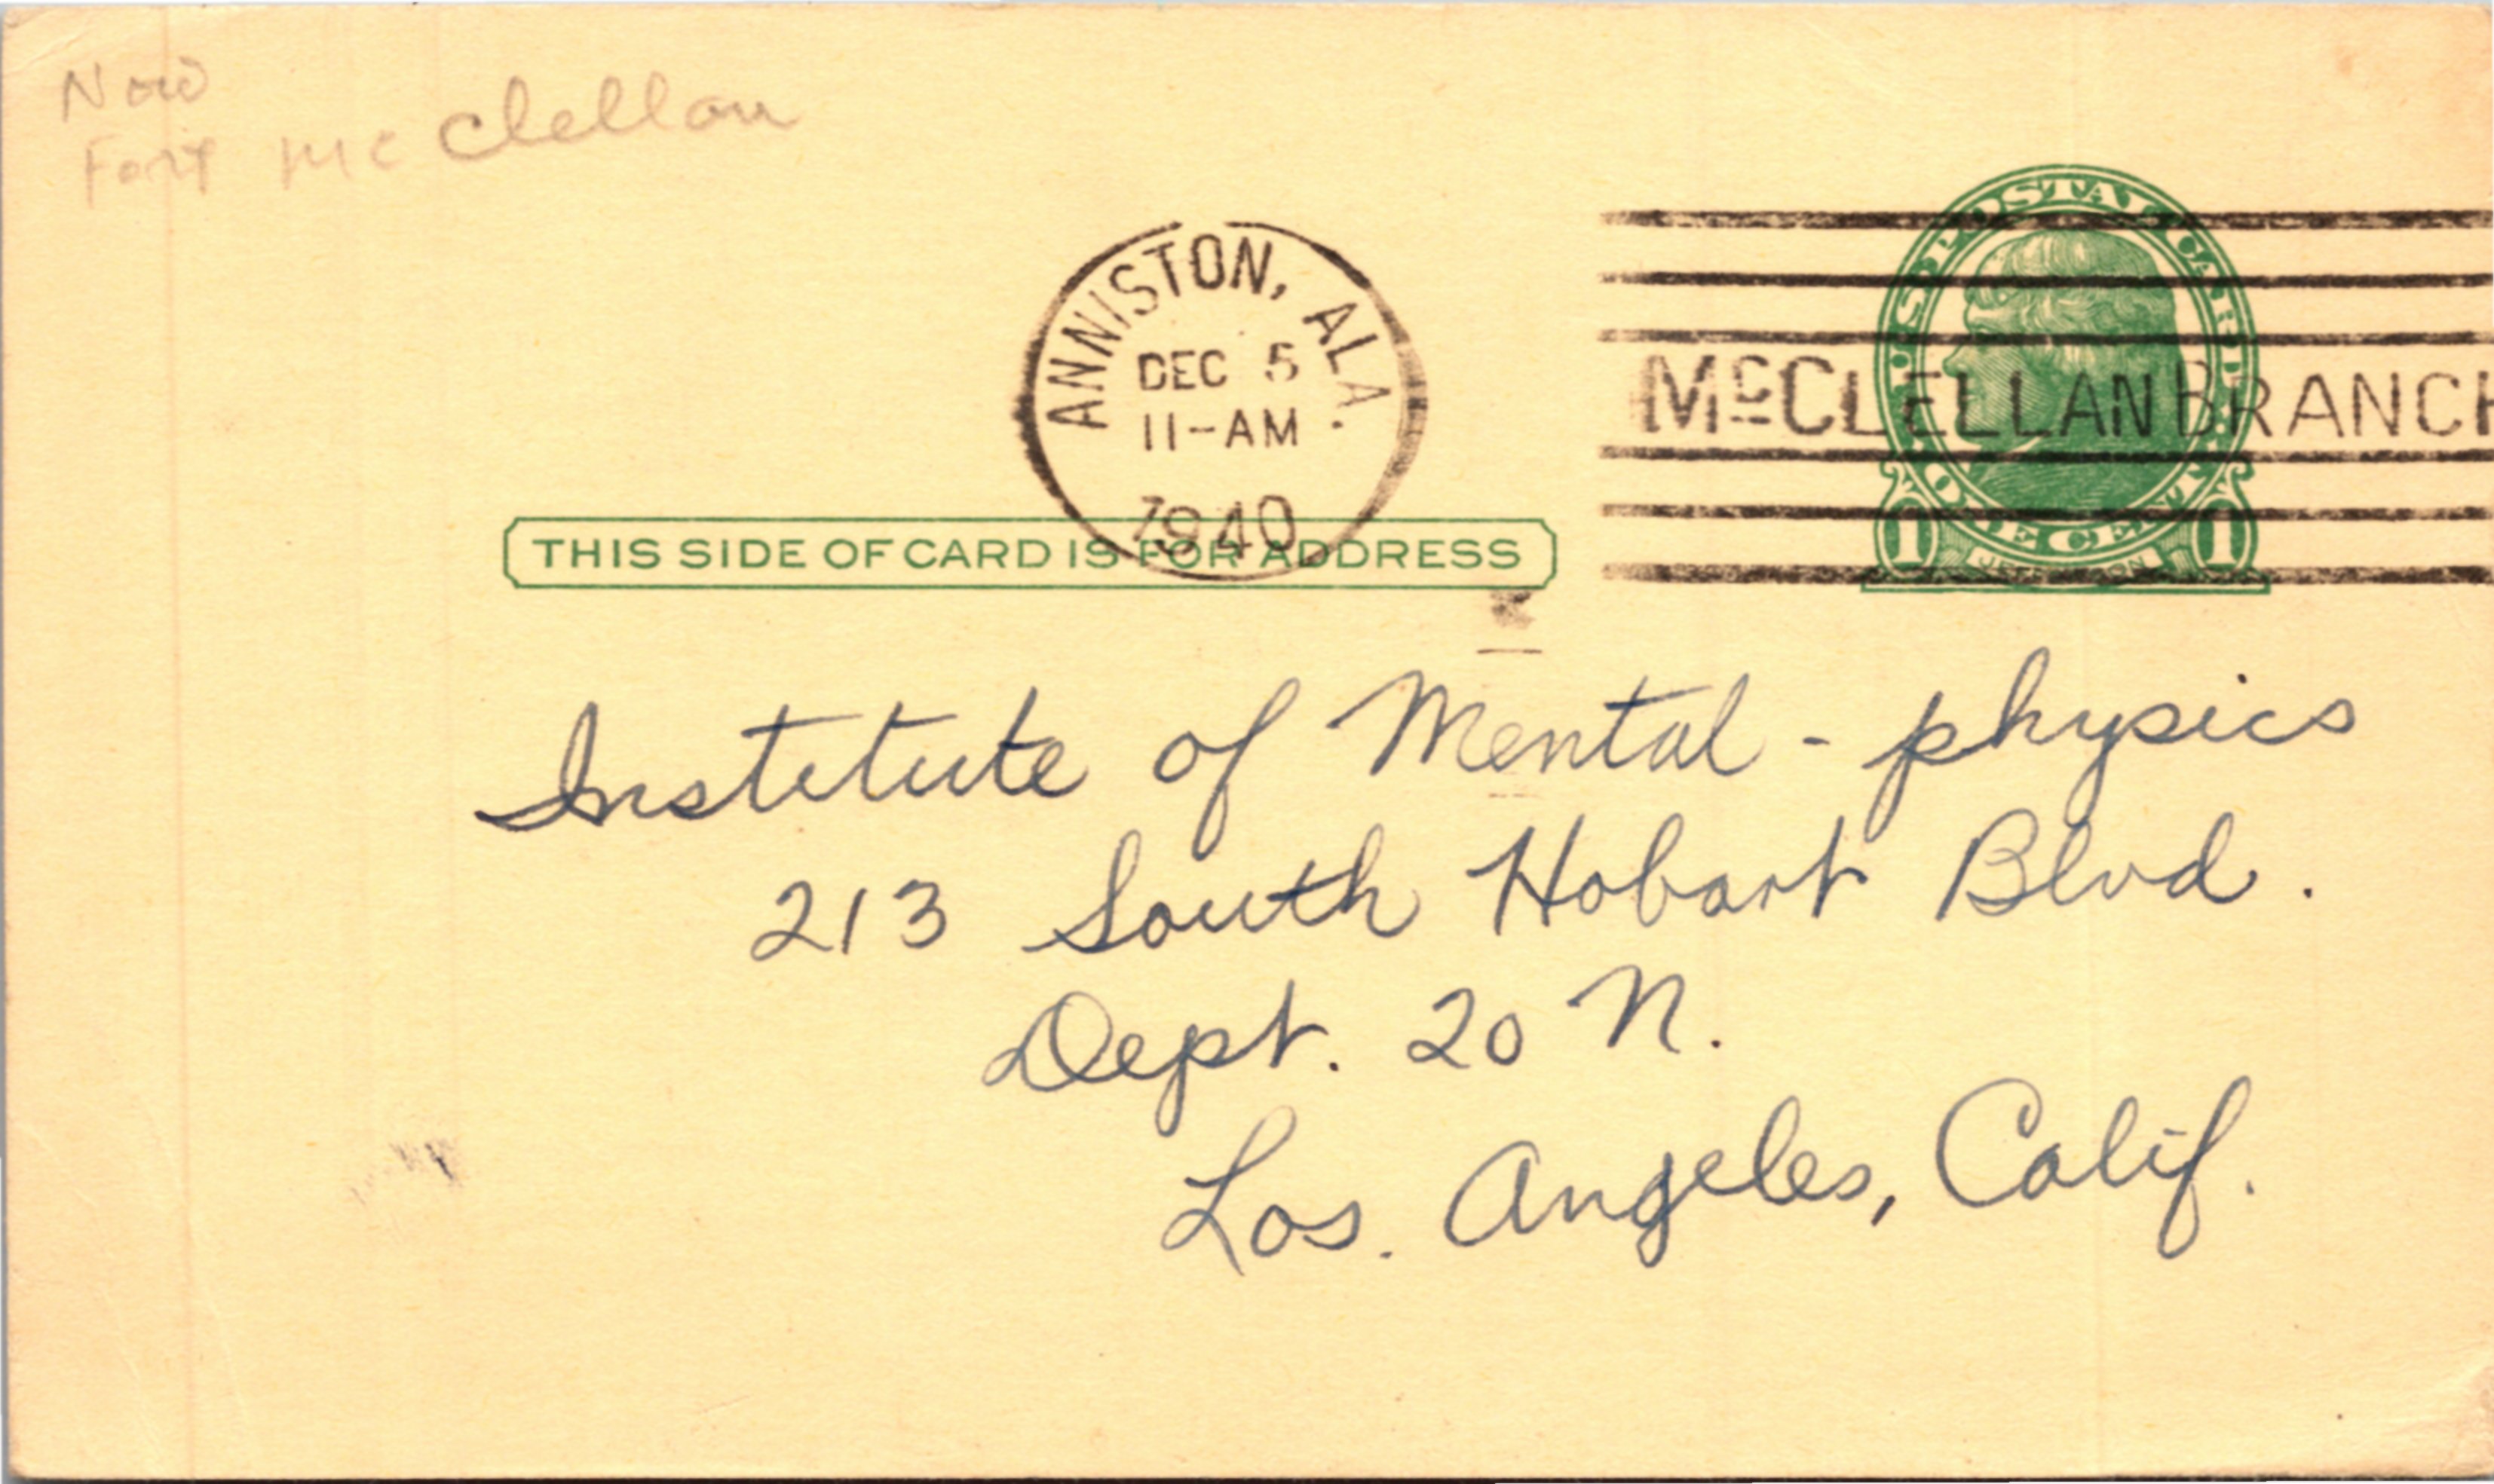 Now
Fort McClellan
ANNISTON, ALA.
DEC 5
11-AM
1940
U.S. POSTAL CARD
McCLELLAN BRANCH
ONE CENT
1 JEFFERSON 1
THIS SIDE OF CARD IS FOR ADDRESS
Institute of Mental-physics
213 South Hobart Blvd.
Dept. 20 N.
Los. Angeles, Calif.